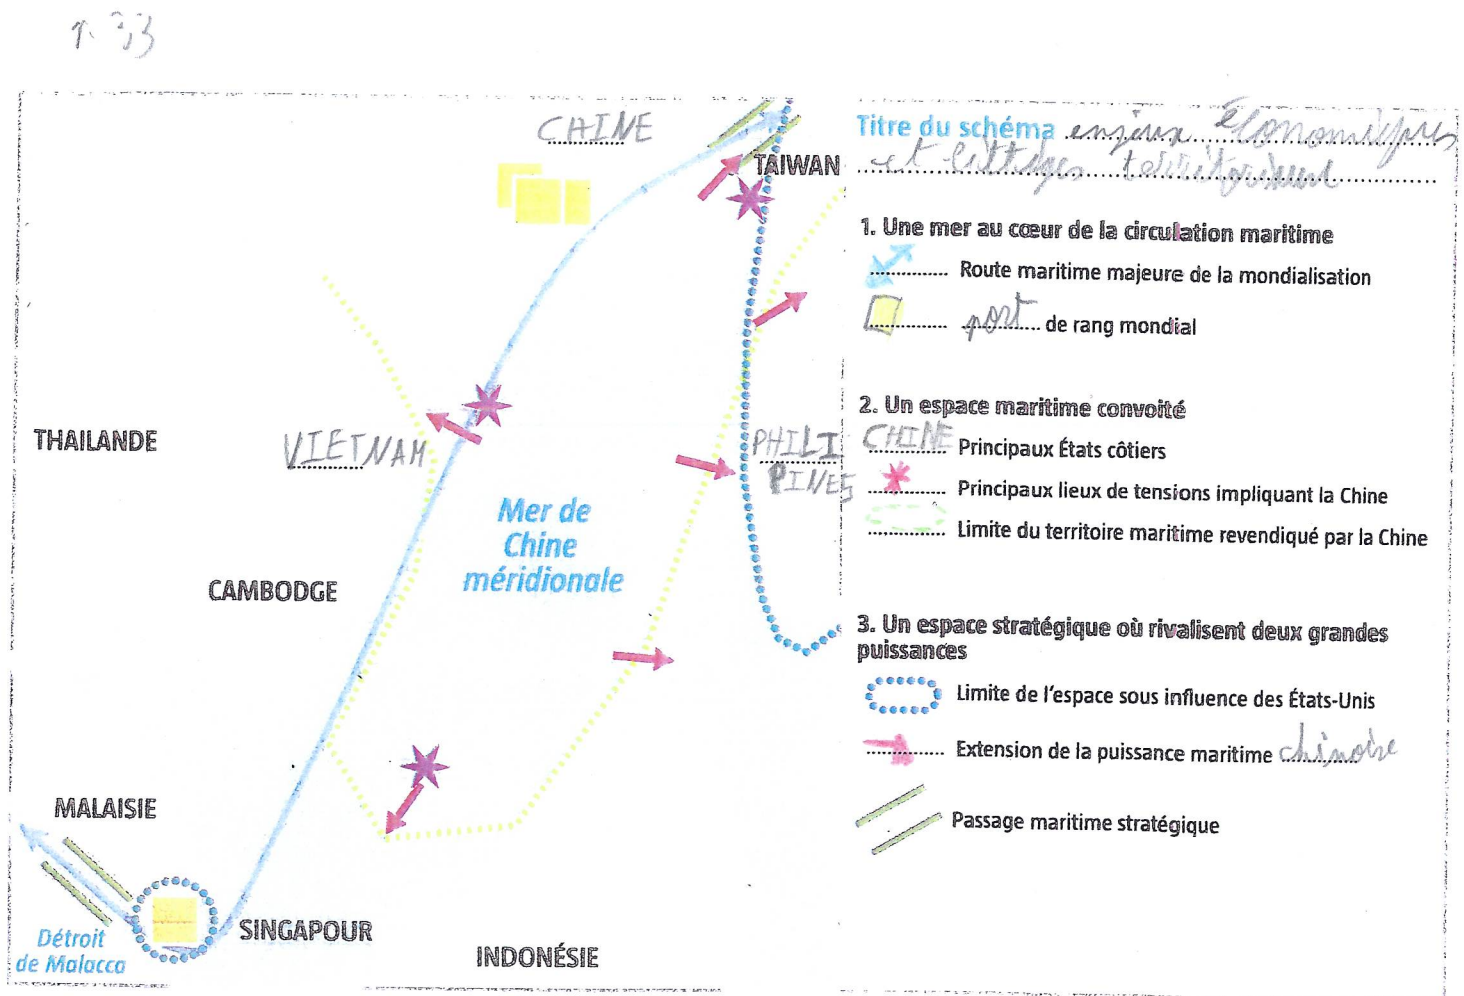 p. 33
CHINE
TAIWAN
THAILANDE
VIETNAM
PHILI
PINES
Mer de
Chine
méridionale
CAMBODGE
MALAISIE
SINGAPOUR
Détroit
de Malacca
INDONÉSIE
Titre du schéma enjeux économiques
et littiges territoriaux
1. Une mer au cœur de la circulation maritime
Route maritime majeure de la mondialisation
port de rang mondial
2. Un espace maritime convoité
CHINE Principaux États côtiers
Principaux lieux de tensions impliquant la Chine
Limite du territoire maritime revendiqué par la Chine
3. Un espace stratégique où rivalisent deux grandes
puissances
Limite de l'espace sous influence des États-Unis
Extension de la puissance maritime chinoise
Passage maritime stratégique